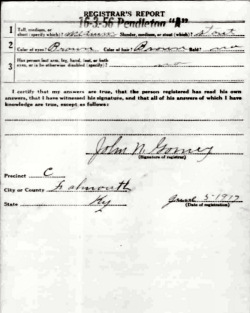 REGISTRAR'S REPORT
16-3-56 Pendleton "A"
1 Tall, medium, or short (specify which)? Medium Slender, medium, or stout (which)? Stout
2 Color of eyes? Brown Color of hair? Brown Bald? no
3 Has person lost arm, leg, hand, foot, or both eyes, or is he otherwise disabled (specify)? no
I certify that my answers are true, that the person registered has read his own answers, that I have witnessed his signature, and that all of his answers of which I have knowledge are true, except as follows:
John N. Gomez
(Signature of registrar)
Precinct C
City or County Falmouth
State Ky
June 5 1917
(Date of registration)